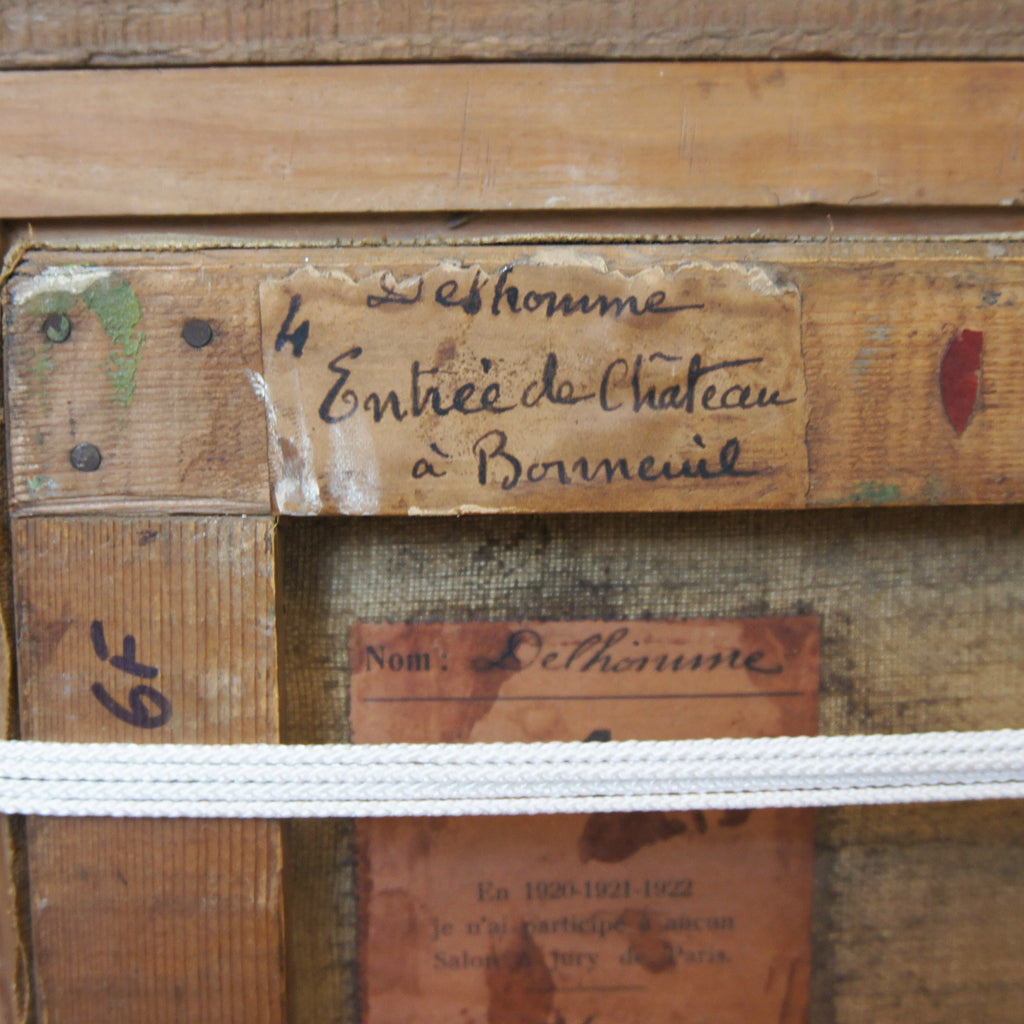 4 Delhomme
Entrée de Château
à Bonneuil
6F
Nom : Delhomme
En 1920-1921-1922
je n'ai participé à aucun
Salon à jury de Paris.